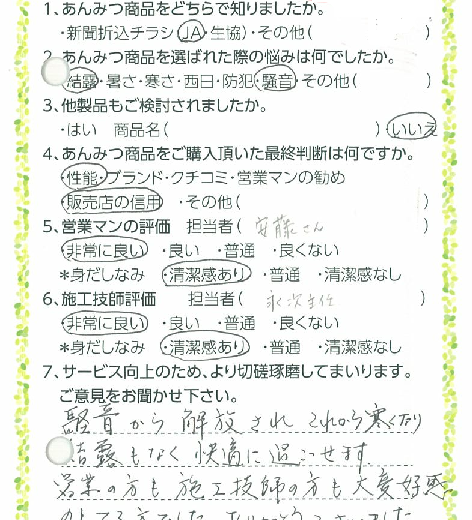 1、あんみつ商品をどちらで知りましたか。
・新聞折込チラシ(JA・生協)・その他( )
2、あんみつ商品を選ばれた際の悩みは何でしたか。
・結露・暑さ・寒さ・西日・防犯・騒音・その他( )
3、他製品もご検討されましたか。
・はい 商品名( ) ・いいえ
4、あんみつ商品をご購入頂いた最終判断は何ですか。
・性能・ブランド・クチコミ・営業マンの勧め
・販売店の信用 ・その他( )
5、営業マンの評価 担当者( 安藤さん )
・非常に良い ・良い ・普通 ・良くない
*身だしなみ ・清潔感あり ・普通 ・清潔感なし
6、施工技師評価 担当者( 主任 )
・非常に良い ・良い ・普通 ・良くない
*身だしなみ ・清潔感あり ・普通 ・清潔感なし
7、サービス向上のため、より切磋琢磨してまいります。
ご意見をお聞かせ下さい。
騒音から解放されこれから寒くなり
結露もなく快適に過ごせます。
営業の方も施工技師の方も大変好感